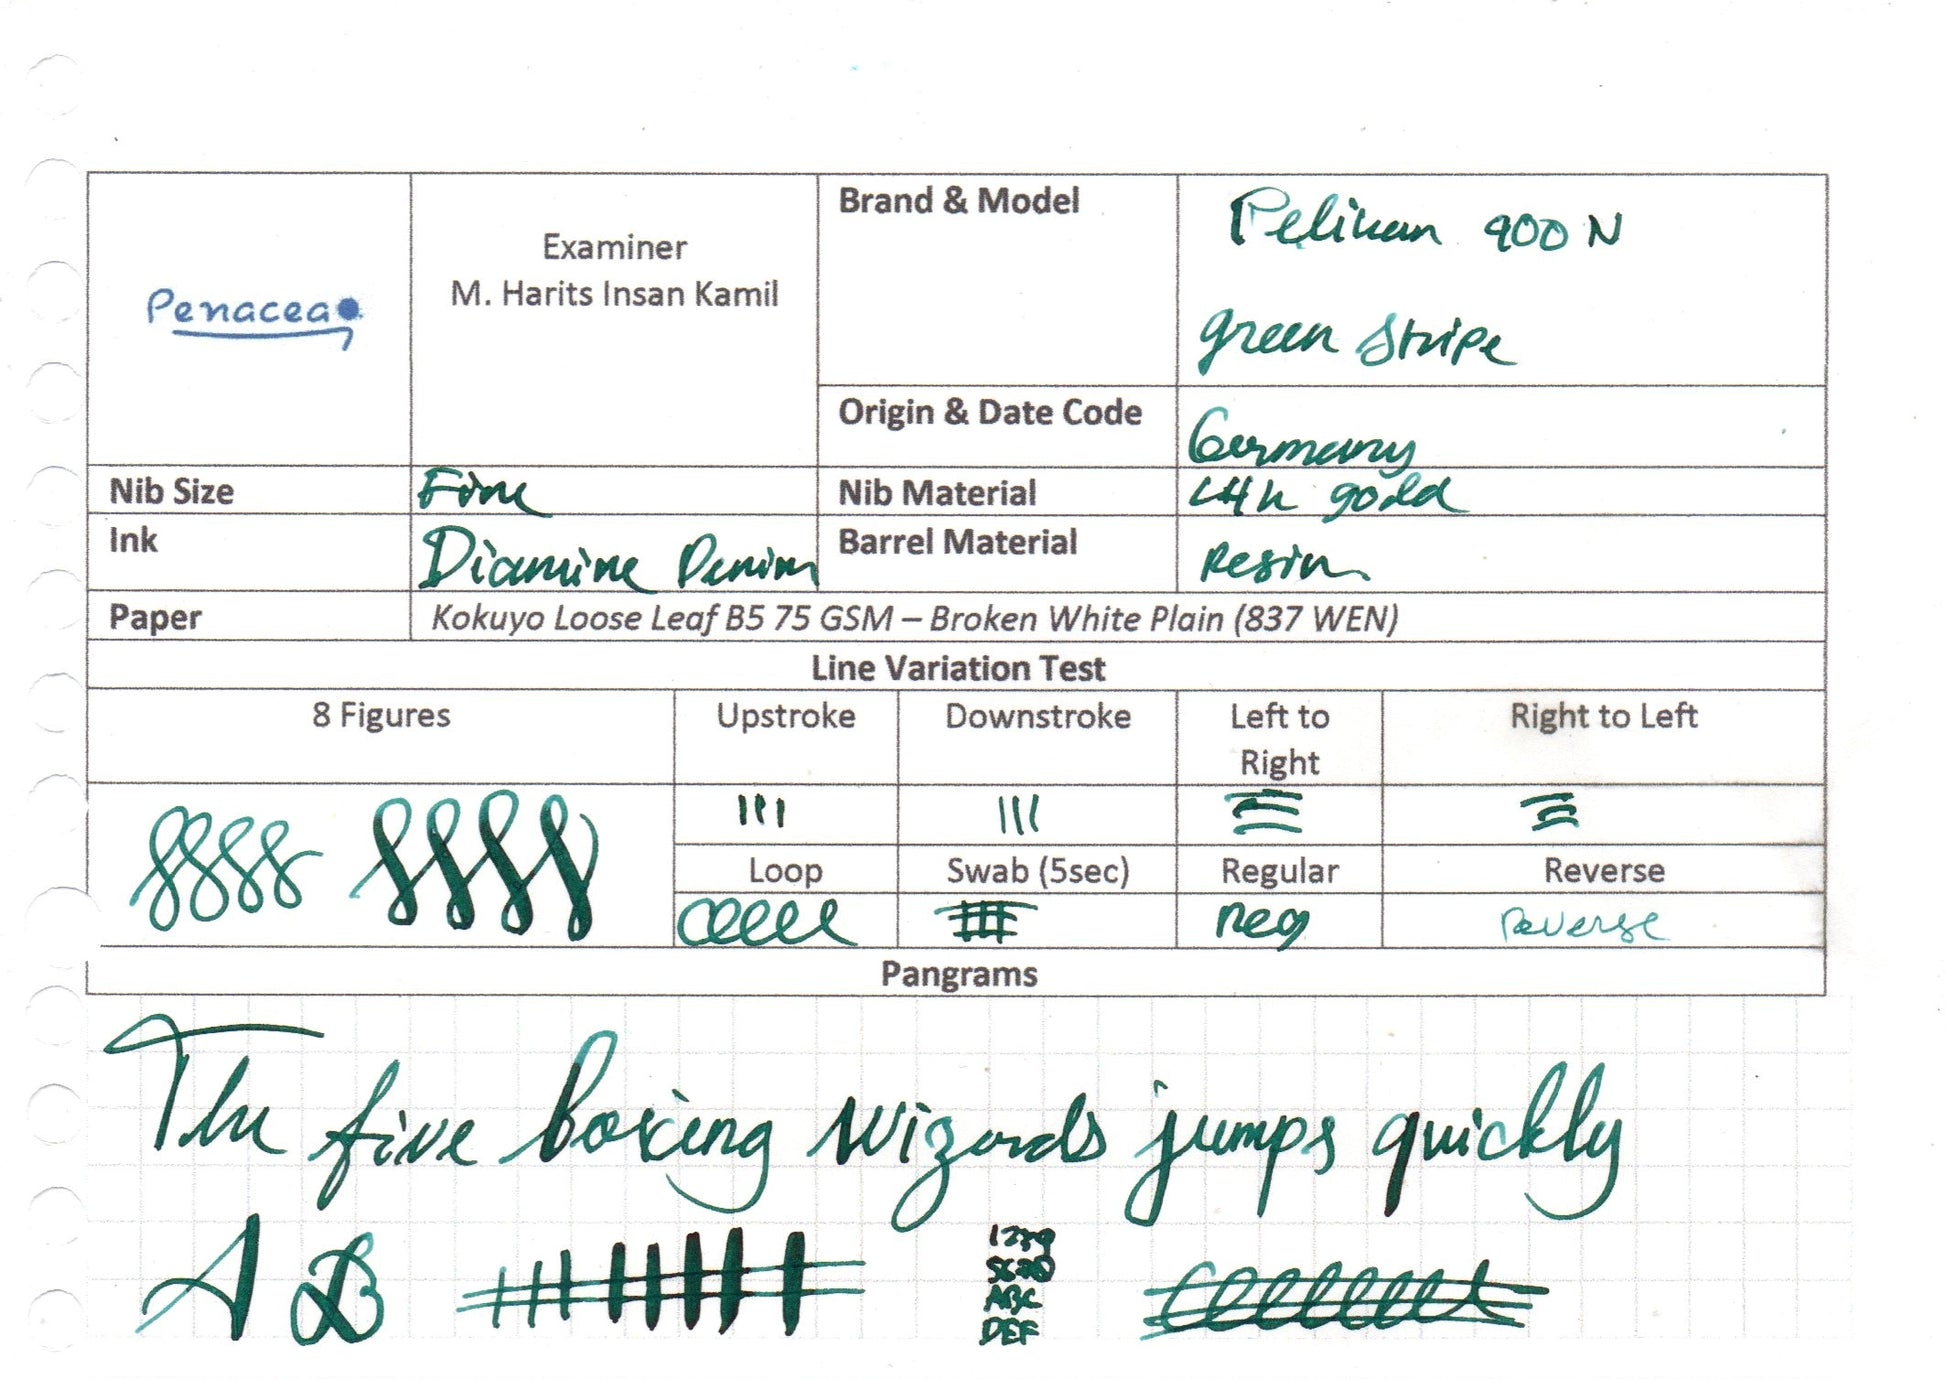 Penacea
Examiner
M. Harits Insan Kamil
Brand & Model
Pelikan 900 N
green stripe
Origin & Date Code
Germany
Nib Size
Fine
Nib Material
14k gold
Ink
Diamine Denim
Barrel Material
Resin
Paper
Kokuyo Loose Leaf B5 75 GSM – Broken White Plain (837 WEN)
Line Variation Test
8 Figures
Upstroke
Downstroke
Left to
Right
Right to Left
Loop
Swab (5sec)
Regular
Reverse
Reg
Reverse
Pangrams
The five boxing wizards jumps quickly
A B
ABC
DEF